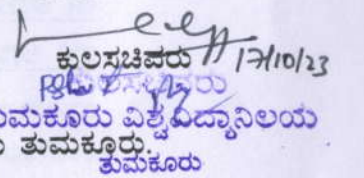 ಕುಲಸಚಿವರು 17/10/23
ಕುಲಸಚಿವರು
ತುಮಕೂರು ವಿಶ್ವವಿದ್ಯಾನಿಲಯ
ತುಮಕೂರು.
ತುಮಕೂರು